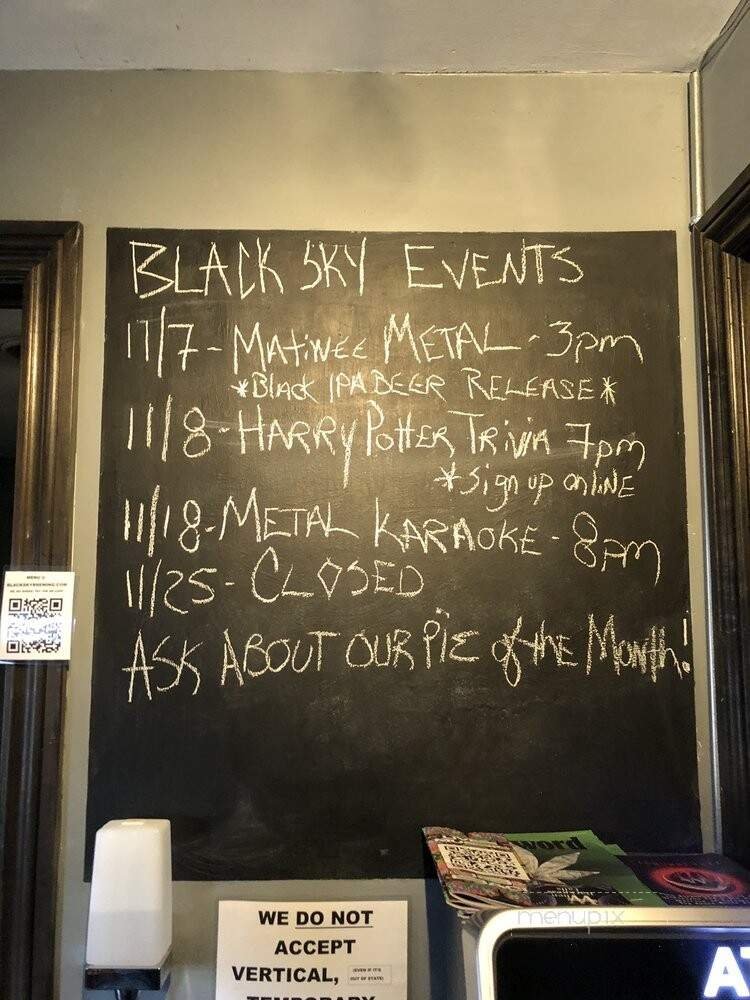 BLACK SKY EVENTS
11/7 - MATINEE METAL - 3pm
*Black IPA BEER RELEASE*
11/8 - HARRY POTTER TRIVIA 7pm
*Sign up onLINE
11/18 - METAL KARAOKE - 8pm
11/25 - CLOSED
ASK ABOUT OUR PIE of the Month!
MENU @
BLACKSKYBREWING.COM
word
WE DO NOT
ACCEPT
VERTICAL, (EVEN IF IT'S
OUT OF STATE)
TEMPORARY
menupix
AT